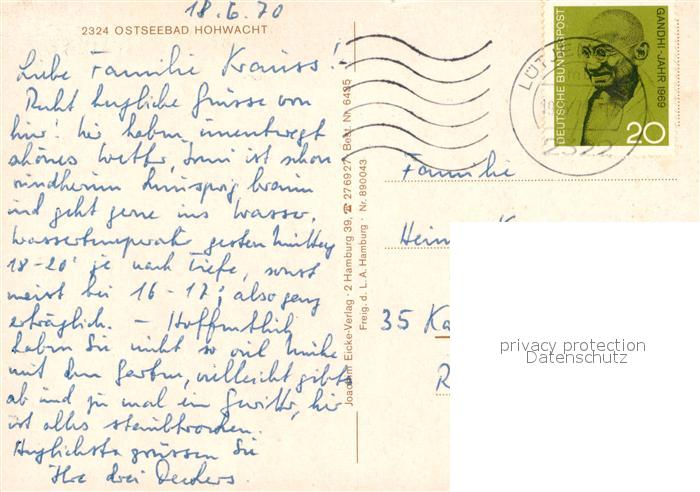 18.6.70
2324 OSTSEEBAD HOHWACHT
Liebe Familie Krauss!
Recht herzliche Grüsse von
hier! Wir haben unentwegt
schönes Wetter, ist schon
braun
und geht gerne ins Wasser.
Wassertemperatur gestern Mittag
18-20° je nach Tiefe, sonst
meist bei 16-17°, also ganz
erträglich. – Hoffentlich
haben Sie nicht so viel Mühe
mit dem Garten, vielleicht gibts
ab und zu mal ein Gewitter, hier
ist alles staubtrocken.
Herzlichst grüssen Sie
Ihre drei
Joachim Eicke-Verlag · 2 Hamburg 39, ☎ 276927 Best. Nr. 6495
Freig. d. L. A. Hamburg · Nr. 890043
DEUTSCHE BUNDESPOST
GANDHI-JAHR 1969
20
LÜTJ
2322
Familie
Hein
35 Ka
R
privacy protection
Datenschutz